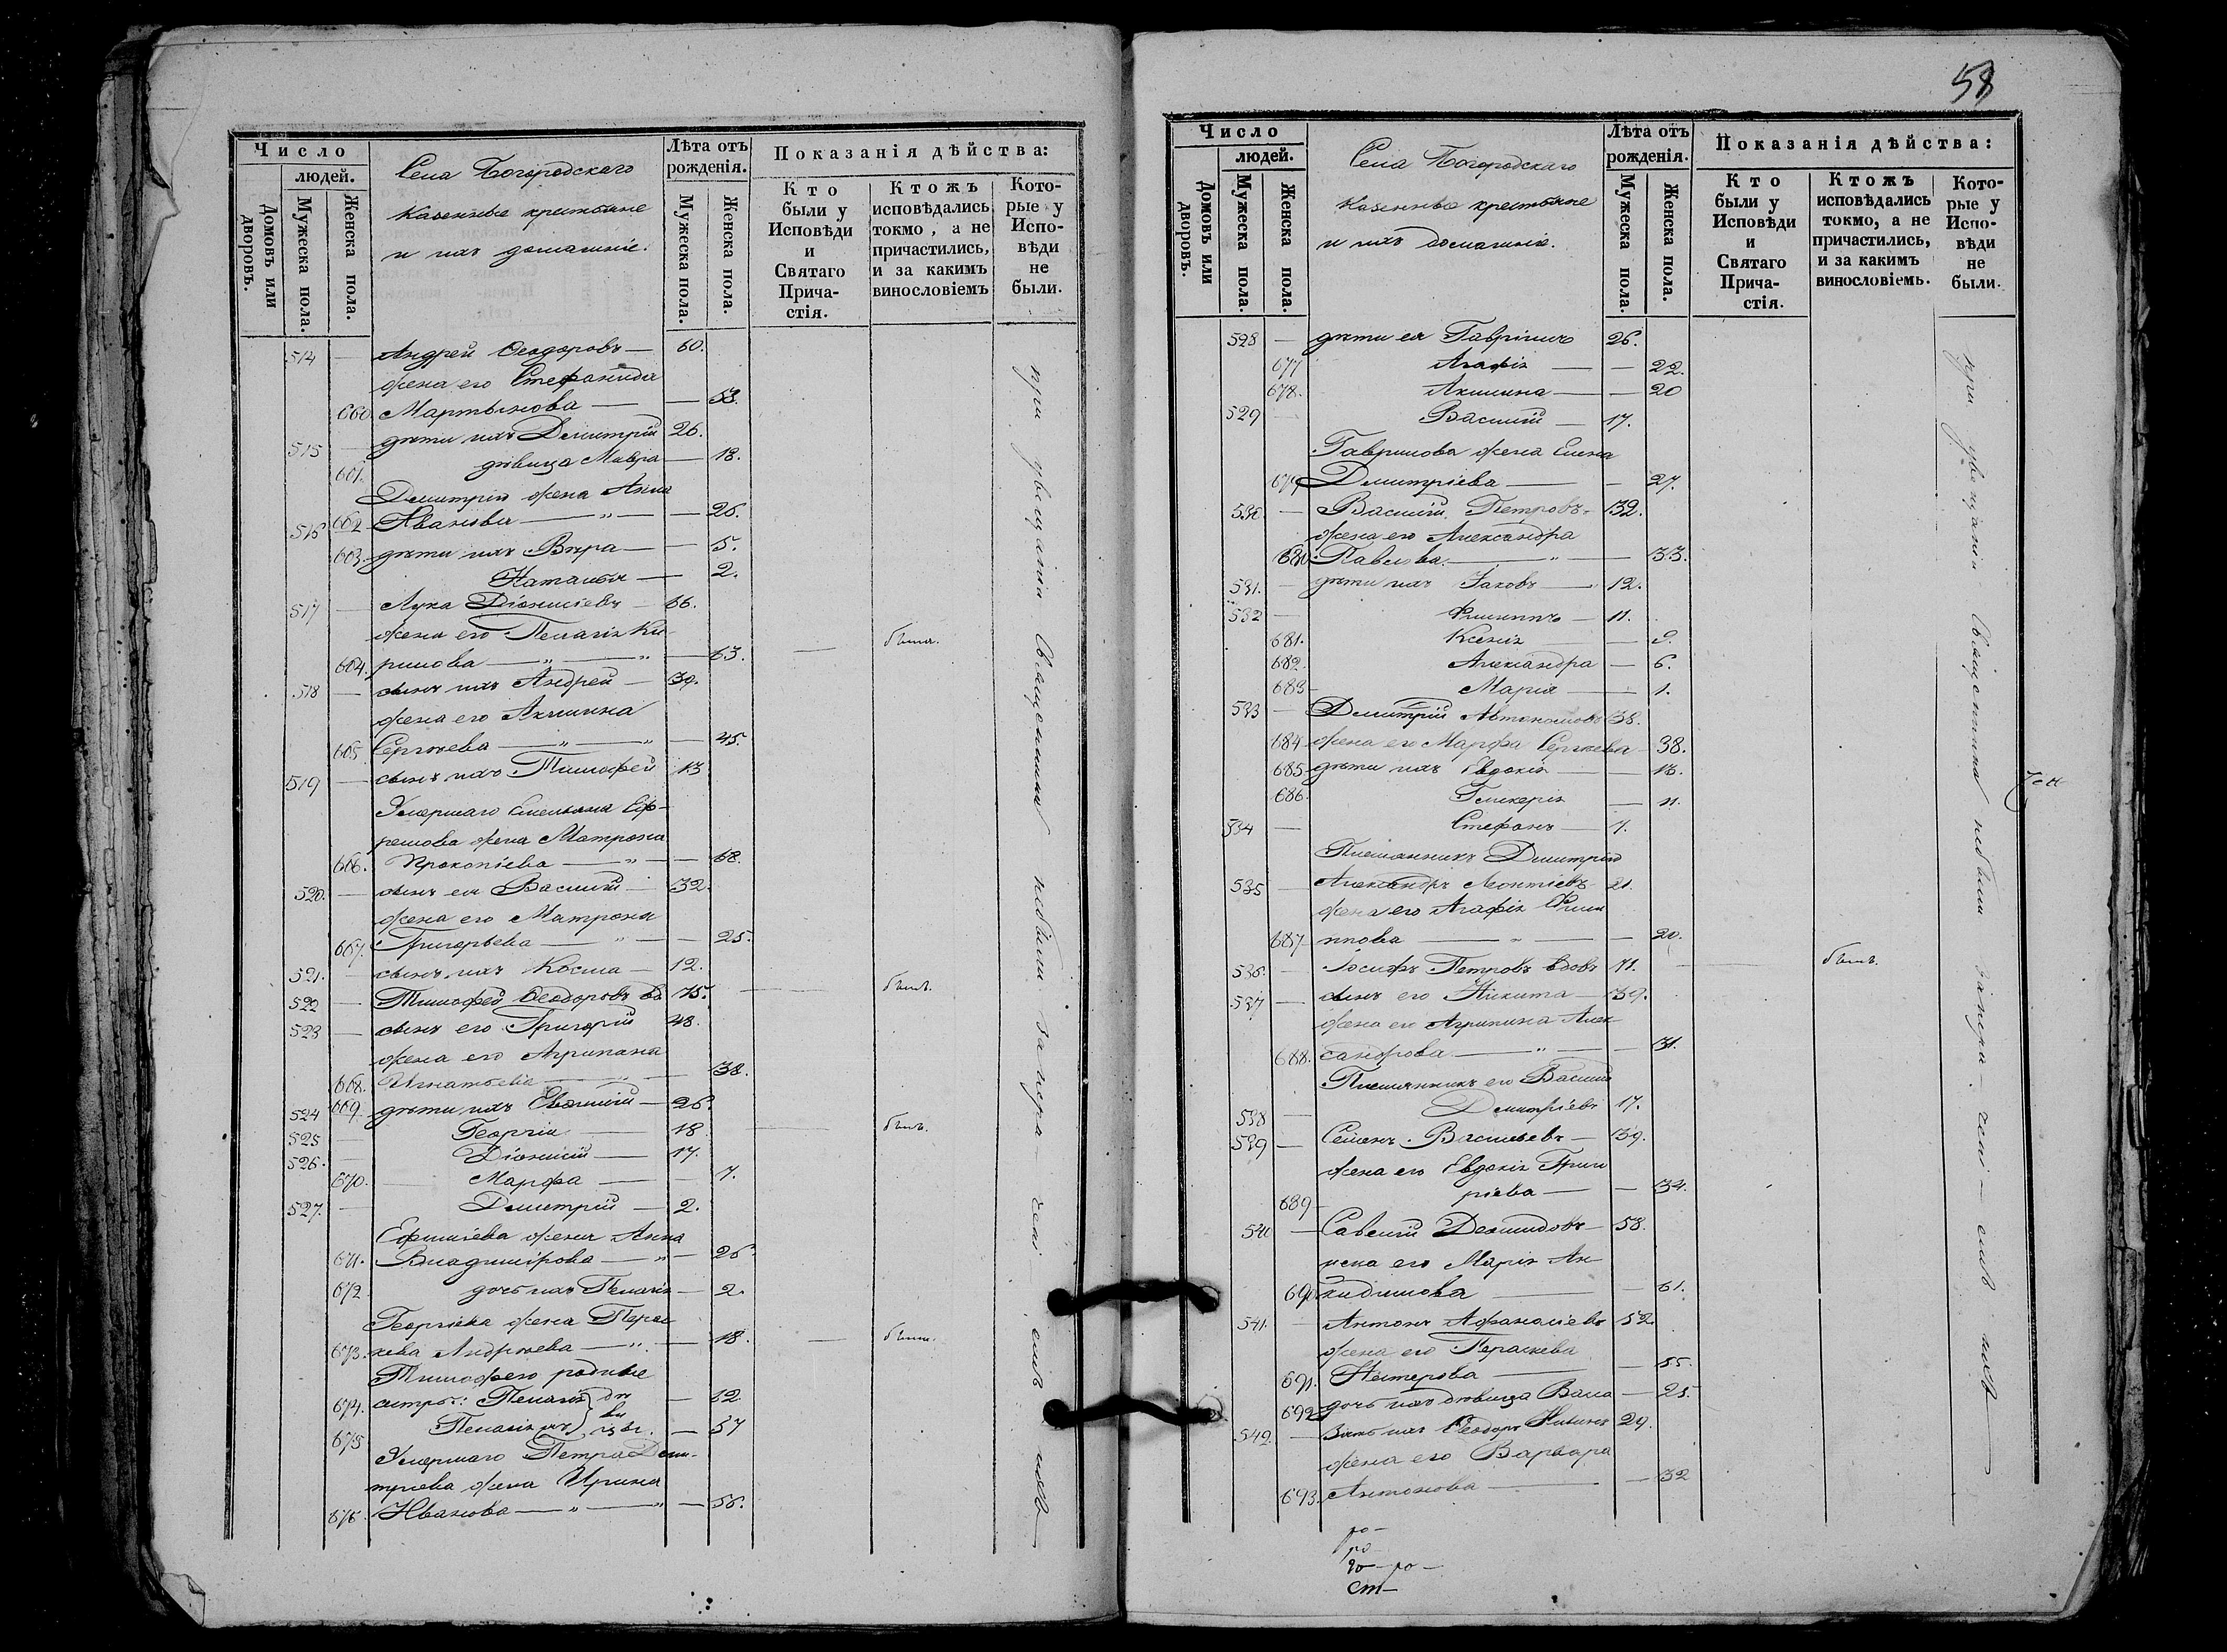 Число
людей.
Домовъ или дворовъ.
Мужеска пола.
Женска пола.
Села Богородскаго
казенные крестьяне
и ихъ домашніе.
Лѣта отъ
рожденія.
Мужеска пола.
Женска пола.
Показанія дѣйства:
Кто
были у
Исповѣди
и
Святаго
Прича-
стія.
Ктожъ
исповѣдались
токмо, а не
причастились,
и за какимъ
винословіемъ
Кото-
рые у
Испо-
вѣди
не
были.
514 — Андрей Ѳеодоровъ — 60.
жена его Стефанида
660 Мартынова — — 53.
515 — дѣти ихъ Димитрій 26.
661. дѣвица Мавра — 18.
Димитрія жена Анна
516 662 Иванова — " — — 26.
663. дѣти ихъ Вѣра — — 5.
Наталья — 2.
517 — Лука Діонисіевъ — 66.
жена его Пелагія Ки-
664. рилова — " — " — 63. — была.
518 — сынъ ихъ Андрей — 39.
жена его Акилина
665 Сергѣева — " — " — 45.
519 — сынъ ихъ Тимофей 13
Умершаго Емельяна Еф-
ремова жена Матрона
666. Прокопіева — " — — 68.
520. — сынъ ея Василій — 32.
жена его Матрона
667. Григорьева — " — — 25.
521. — сынъ ихъ Косма — 12.
522 — Тимофей Ѳеодоровъ вд 75. — былъ.
523 — сынъ его Григорій 48.
жена его Агрипина
668. Игнатьева — " — 38.
524 669 дѣти ихъ Евфимій — 26.
525 — Георгій — 18 — былъ.
526. — Діонисій — 17.
670. — Марфа — — 7.
527. — Димитрій — 2.
Ефиміева жена Анна
671. Владимірова — " — 26.
672 дочь ихъ Пелагія — 2.
Георгіева жена Парас
673. кева Андреева — " — 18. — были.
Тимофею родные
674. сестры: Пелагія дѣ — 62
675 Пелагія ж вицы. — 57
Умершаго Петра Дим-
тріева жена Ирина
676 Иванова — " — " — 56.
при увещаніи Священника небыли
58
Число
людей.
Домовъ или дворовъ.
Мужеска пола.
Женска пола.
Села Богородскаго
казенные крестьяне
и ихъ домашніе.
Лѣта отъ
рожденія.
Мужеска пола.
Женска пола.
Показанія дѣйства:
Кто
были у
Исповѣди
и
Святаго
Прича-
стія.
Ктожъ
исповѣдались
токмо, а не
причастились,
и за какимъ
винословіемъ.
Кото-
рые у
Испо-
вѣди
не
были.
528 — дѣти ея Гавріилъ 26.
677 Агафія — — 22.
678. Акилина — — 20
529 — Василій — 17.
Гавриилова жена Елена
679 Димитріева — — 27.
530. — Василій Петровъ — 32.
жена его Александра
680 Павлова — " — 33.
531. — дѣти ихъ Іаковъ — 12.
532 — Филиппъ — 11.
681. Ксенія — 9.
682. Александра — 6.
683 — Марія — 1.
533 — Димитрій Автономовъ 38.
684 жена его Марфа Сергѣева — 38.
685 дѣти ихъ Евдокія — — 13.
686. Гликерія — 11.
534 — Стефанъ — 7.
Племянникъ Димитрія
535 — Александръ Леонтіевъ 21.
жена его Агафія Фили
687 ппова — " — — 20.
536. — Іосифъ Петровъ вдовъ 71. — былъ.
537 — сынъ его Никита — 39.
жена его Агрипина Алек-
688. сандрова — " — 31.
Племянникъ его Василій
538 — Димитріевъ 17.
539 — Семенъ Васильевъ — 39.
жена его Евдокія Григо
689 ріева — — 34.
540 — Савелій Демидовъ — 58.
жена его Марія Ак-
690 кидинова — — 61.
541. — Антонъ Афанасіевъ 52.
жена его Параскева
691. Нестерова — — 55.
692 дочь ихъ дѣвица Васса — 25.
542. — Зять ихъ Ѳеодоръ 29.
жена его Варвара
693. Антонова — — 32
при увещаніи Священника небыли
ро —
ро
го — ро —
ст —